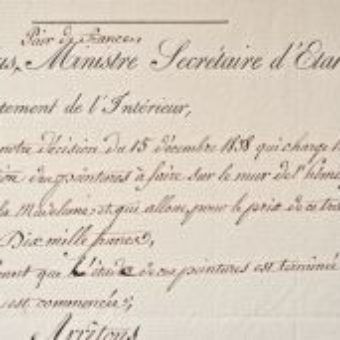 Pair de France
us, Ministre Secrétaire d'Etat
tement de l'Intérieur,
notre décision du 15 décembre 1838 qui charge
ion des peintures à faire sur le mur de l'hémi
la Madelaine, et qui alloue, pour le prix de ce tra
Dix mille francs;
que l'étude de ces peintures est terminée
est commencée;
Arrêtons